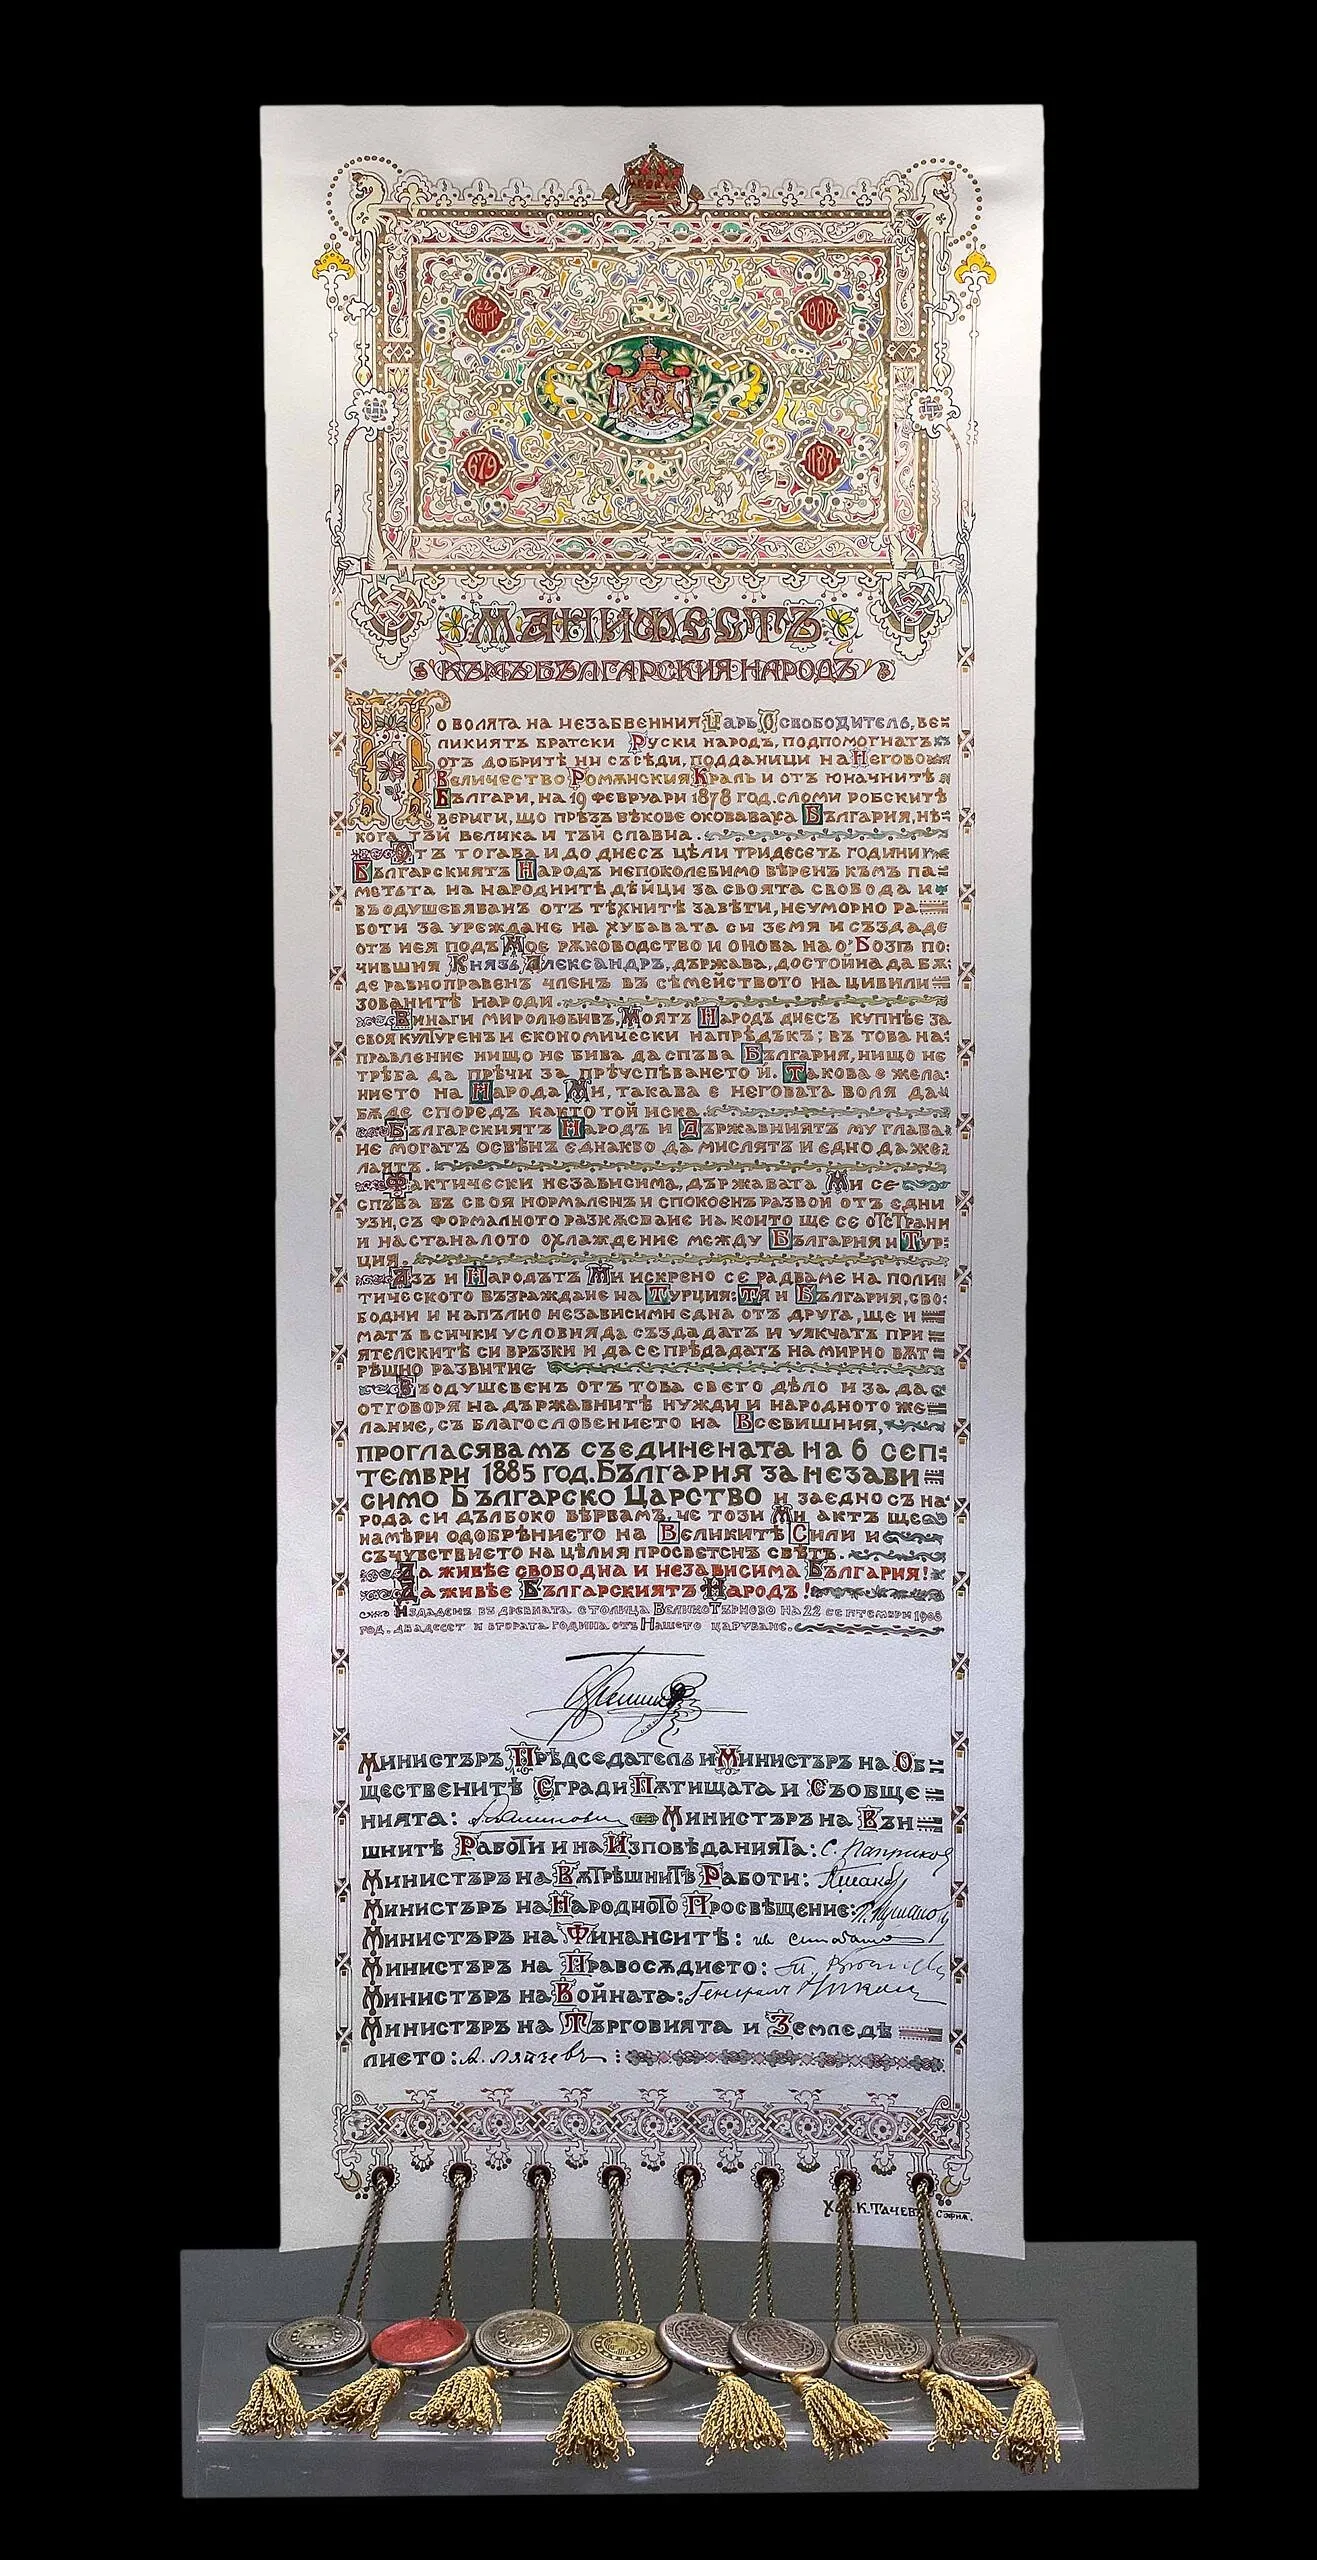 22 СЕПТ.
1908
679
1187
МАНИФЕСТЪ
КЪМЪ БЪЛГАРСКИЯ НАРОДЪ
ПО ВОЛЯТА НА НЕЗАБВЕННИЯ ЦАРЬ ОСВОБОДИТЕЛЬ, ВЕ-
ЛИКИЯТЪ БРАТСКИ РУСКИ НАРОДЪ, ПОДПОМОГНАТЪ
ОТЪ ДОБРИТѢ НИ СЪСѢДИ, ПОДДАНИЦИ НА НЕГОВО
ВЕЛИЧЕСТВО РОМѪНСКИЯ КРАЛЬ И ОТЪ ЮНАЧНИТѢ
БЪЛГАРИ, НА 19 ФЕВРУАРИ 1878 ГОД. СЛОМИ РОБСКИТѢ
ВЕРИГИ, ЩО ПРѢЗЪ ВѢКОВЕ ОКОВАВАХА БЪЛГАРИЯ, НѢ-
КОГА ТЪЙ ВЕЛИКА И ТЪЙ СЛАВНА.
ОТЪ ТОГАВА И ДО ДНЕСЪ ЦѢЛИ ТРИДЕСЕТЬ ГОДИНИ
БЪЛГАРСКИЯТЪ НАРОДЪ НЕПОКОЛЕБИМО ВѢРЕНЪ КЪМЪ ПА-
МЕТЬТА НА НАРОДНИТѢ ДѢЙЦИ ЗА СВОЯТА СВОБОДА И
ВЪОДУШЕВЯВАНЪ ОТЪ ТѢХНИТѢ ЗАВѢТИ, НЕУМОРНО РА-
БОТИ ЗА УРЕЖДАНЕ НА ХУБАВАТА СИ ЗЕМЯ И СЪЗДАДЕ
ОТЪ НЕЯ ПОДЪ МОЕ РѪКОВОДСТВО И ОНОВА НА О' БОЗѢ ПО-
ЧИВШИЯ КНЯЗЬ АЛЕКСАНДРЪ, ДЪРЖАВА, ДОСТОЙНА ДА БѪ-
ДЕ РАВНОПРАВЕНЪ ЧЛЕНЪ ВЪ СѢМЕЙСТВОТО НА ЦИВИЛИ-
ЗОВАНИТѢ НАРОДИ.
ВИНАГИ МИРОЛЮБИВЪ, МОЯТЪ НАРОДЪ ДНЕСЪ КУПНѢЕ ЗА
СВОЯ КУЛТУРЕНЪ И ЕКОНОМИЧЕСКИ НАПРѢДЪКЪ; ВЪ ТОВА НА-
ПРАВЛЕНИЕ НИЩО НЕ БИВА ДА СПЪВА БЪЛГАРИЯ, НИЩО НЕ
ТРѢБА ДА ПРѢЧИ ЗА ПРѢУСПѢВАНЕТО Й. ТАКОВА Е ЖЕЛА-
НИЕТО НА НАРОДА МИ, ТАКАВА Е НЕГОВАТА ВОЛЯ ДА
БѪДЕ СПОРЕДЪ КАКТО ТОЙ ИСКА.
БЪЛГАРСКИЯТЪ НАРОДЪ И ДЪРЖАВНИЯТЪ МУ ГЛАВА
НЕ МОГАТЪ ОСВѢНЪ ЕДНАКВО ДА МИСЛЯТЪ И ЕДНО ДА ЖЕ-
ЛАЯТЪ.
ФАКТИЧЕСКИ НЕЗАВИСИМА, ДЪРЖАВАТА МИ СЕ
СПЪВА ВЪ СВОЯ НОРМАЛЕНЪ И СПОКОЕНЪ РАЗВОЙ ОТЪ ЕДНИ
УЗИ, СЪ ФОРМАЛНОТО РАЗКѪСВАНЕ НА КОИТО ЩЕ СЕ ОТСТРАНИ
И НАСТАНАЛОТО ОХЛАЖДЕНИЕ МЕЖДУ БЪЛГАРИЯ И ТУР-
ЦИЯ.
АЗЪ И НАРОДЪТЪ МИ ИСКРЕНО СЕ РАДВАМЕ НА ПОЛИ-
ТИЧЕСКОТО ВЪЗРАЖДАНЕ НА ТУРЦИЯ: ТЯ И БЪЛГАРИЯ, СВО-
БОДНИ И НАПЪЛНО НЕЗАВИСИМИ ЕДНА ОТЪ ДРУГА, ЩЕ И-
МАТЪ ВСИЧКИ УСЛОВИЯ ДА СЪЗДАДАТЪ И УЯКЧАТЪ ПРИ-
ЯТЕЛСКИТѢ СИ ВРЪЗКИ И ДА СЕ ПРѢДАДАТЪ НА МИРНО ВѪТ-
РѢШНО РАЗВИТИЕ
ВЪОДУШЕВЕНЪ ОТЪ ТОВА СВЕТО ДѢЛО И ЗА ДА
ОТГОВОРЯ НА ДЪРЖАВНИТѢ НУЖДИ И НАРОДНОТО ЖЕ-
ЛАНИЕ, СЪ БЛАГОСЛОВЕНИЕТО НА ВСЕВИШНИЯ,
ПРОГЛАСЯВАМЪ СЪЕДИНЕНАТА НА 6 СЕП-
ТЕМВРИ 1885 ГОД. БЪЛГАРИЯ ЗА НЕЗАВИ-
СИМО БЪЛГАРСКО ЦАРСТВО И ЗАЕДНО СЪ НА-
РОДА СИ ДЪЛБОКО ВЪРВАМЪ, ЧЕ ТОЗИ МИ АКТЪ ЩЕ
НАМѢРИ ОДОБРѢНИЕТО НА ВЕЛИКИТѢ СИЛИ И
СЪЧУВСТВИЕТО НА ЦѢЛИЯ ПРОСВЕТЕНЪ СВѢТЪ.
ДА ЖИВѢЕ СВОБОДНА И НЕЗАВИСИМА БЪЛГАРИЯ!
ДА ЖИВѢЕ БЪЛГАРСКИЯТЪ НАРОДЪ!
ИЗДАДЕНЪ ВЪ ДРЕВНАТА СТОЛИЦА ВЕЛИКО ТЪРНОВО НА 22 СЕПТЕМВРИ 1908
ГОД. ДВАДЕСЕТ И ВТОРАТА ГОДИНА ОТЪ НАШЕТО ЦАРУВАНЕ.
МИНИСТЪРЪ ПРѢДСЕДАТЕЛЬ И МИНИСТЪРЪ НА ОБ-
ЩЕСТВЕНИТѢ СГРАДИ ПѪТИЩАТА И СЪОБЩЕ-
НИЯТА: МИНИСТЪРЪ НА ВЪН-
ШНИТѢ РАБОТИ И НА ИЗПОВѢДАНИЯТА: С. Паприковъ
МИНИСТЪРЪ НА ВѪТРѢШНИТѢ РАБОТИ:
МИНИСТЪРЪ НА НАРОДНОТО ПРОСВѢЩЕНИЕ:
МИНИСТЪРЪ НА ФИНАНСИТѢ:
МИНИСТЪРЪ НА ПРАВОСѪДИЕТО:
МИНИСТЪРЪ НА ВОЙНАТА: Генералъ
МИНИСТЪРЪ НА ТЪРГОВИЯТА И ЗЕМЛЕДѢ-
ЛИЕТО: А. Ляпчевъ
ХУД. К. ТАЧЕВЪ СОФИЯ.